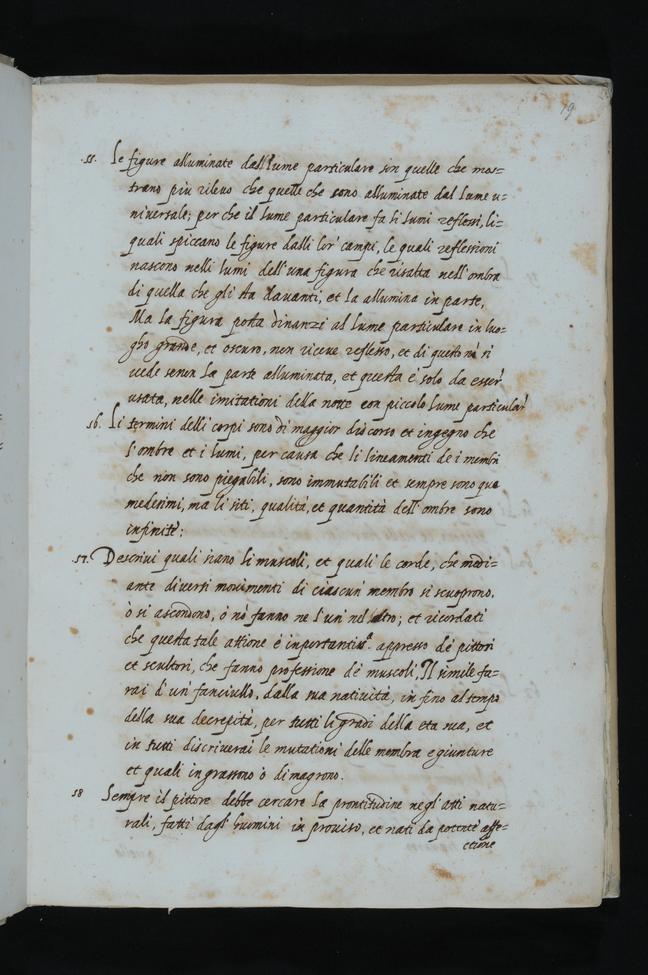 19
.55. Le figure alluminate dal lume particulare son quelle che mos=
trano piu rileuo che quelle che sono alluminate dal lume u=
niuersale; per che il lume particulare fa li lumi reflessi, li=
quali spiccano le figure dalli lor' campi, le quali reflessioni
nascono nelli lumi dell'una figura che risalta nell'ombra
di quella che gli sta dauanti, et la allumina in parte,
Ma la figura posta dinanzi al lume particulare in luo=
gho grande, et oscuro, non riceue reflesso, et di questa nō si
uede senon la parte alluminata, et questa è solo da esser'
usata, nelle imitationi della notte con piccolo lume particular'
56. Li termini delli corpi sono di maggior discorso et ingegno che
l'ombre et i lumi, per causa che li lineamenti de i membri
che non sono piegabili, sono immutabili et sempre sono que
medesimi, ma li siti, qualità, et quantità dell'ombre sono
infinite:
.57. Descriui quali siano li muscoli, et quali le corde, che medi=
ante diuersi mouimenti di ciascun' membro si scuoprono,
ò si ascondono, ò nō fanno ne l'un' nè l'altro; et ricordati
che questa tale attione è inportantissᵃ. appresso dè pittori
et scultori, che fanno professione dè muscoli, Il simile fa=
rai d'un fanciullo, dalla sua natiuità, in fino al tempo
della sua decrepità, per tutti li gradi della età sua, et
in tutti discriuerai le mutationi delle membra e giunture
et quali ingrassono ò dimagrono.
58 Sempre il pittore debbe cercare la prontitudine negl'atti natu=
rali, fatti dagl' huomini in prouiso, et nati da potente affe=
ctione